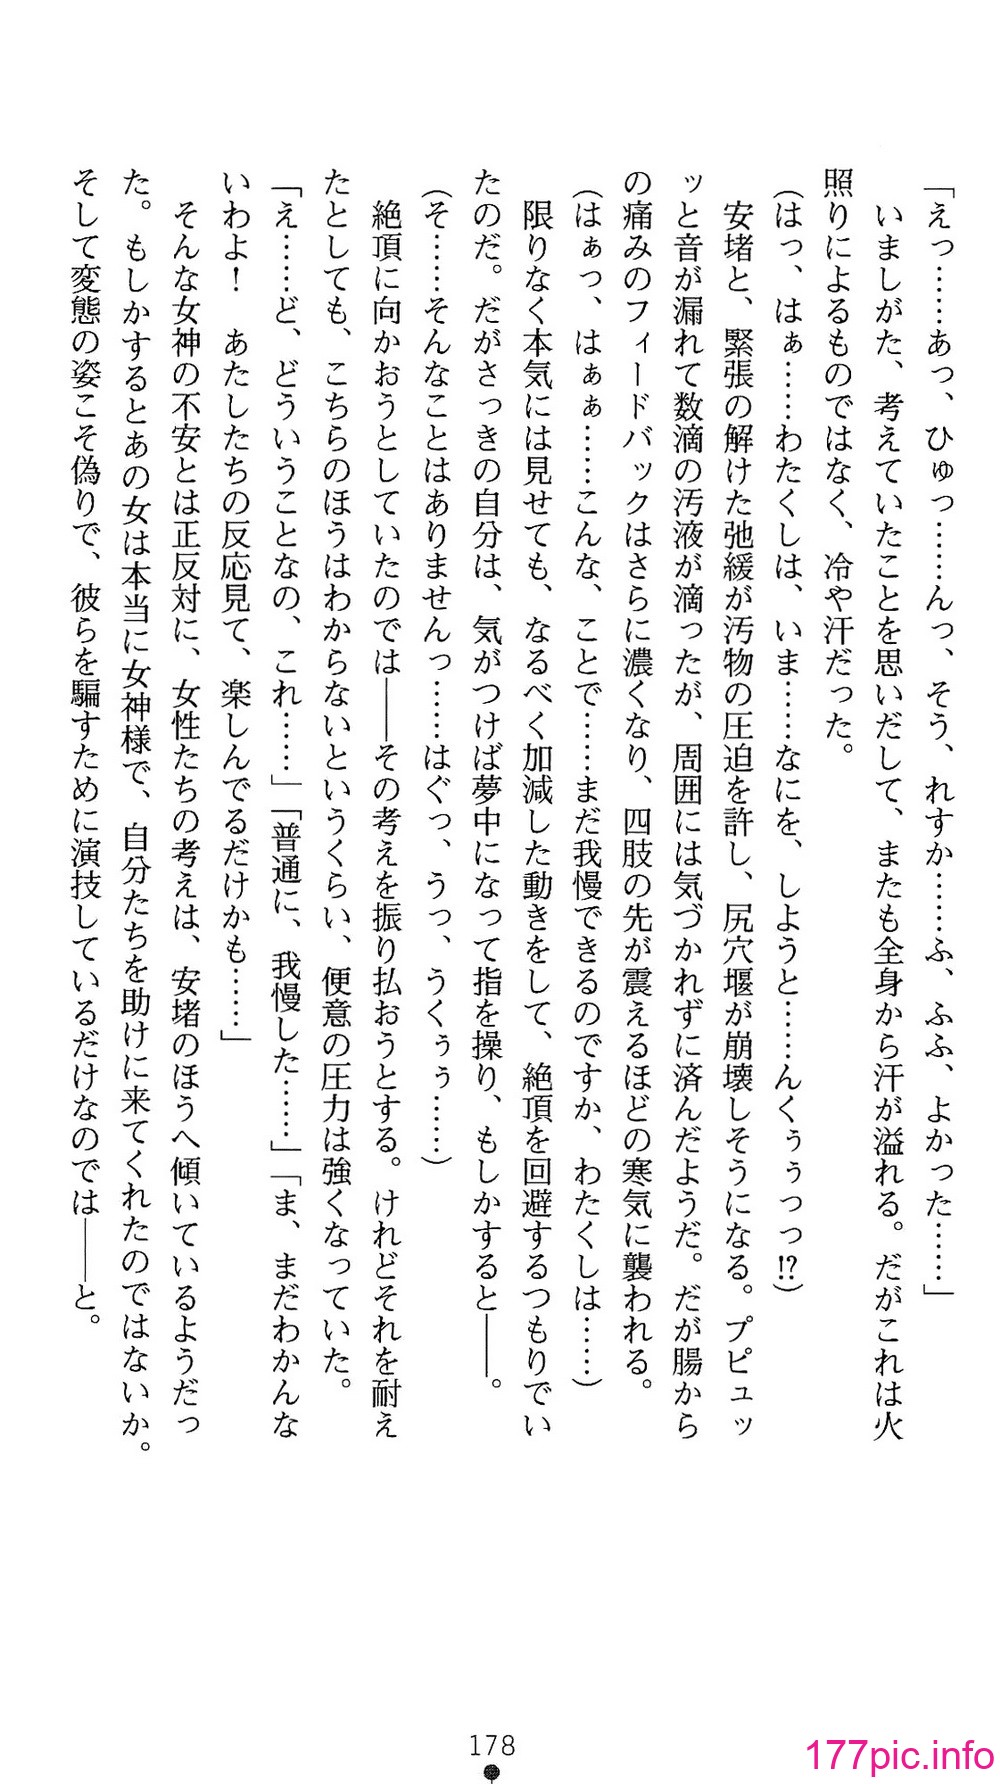 「えっ……あっ、ひゅっ……んっ、そう、れすか……ふ、ふふ、よかった……」
　いましがた、考えていたことを思いだして、またも全身から汗が溢れる。だがこれは火
照りによるものではなく、冷や汗だった。
（はっ、はぁ……わたくしは、いま……なにを、しようと……んくぅぅっっ!?）
　安堵と、緊張の解けた弛緩が汚物の圧迫を許し、尻穴堰が崩壊しそうになる。プピュッ
ッと音が漏れて数滴の汚液が滴ったが、周囲には気づかれずに済んだようだ。だが腸から
の痛みのフィードバックはさらに濃くなり、四肢の先が震えるほどの寒気に襲われる。
（はぁっ、はぁぁ……こんな、ことで……まだ我慢できるのですか、わたくしは……）
　限りなく本気には見せても、なるべく加減した動きをして、絶頂を回避するつもりでい
たのだ。だがさっきの自分は、気がつけば夢中になって指を操り、もしかすると――。
（そ……そんなことはありませんっ……はぐっ、うっ、うくぅぅ……）
　絶頂に向かおうとしていたのでは――その考えを振り払おうとする。けれどそれを耐え
たとしても、こちらのほうはわからないというくらい、便意の圧力は強くなっていた。
「え……ど、どういうことなの、これ……」「普通に、我慢した……」「ま、まだわかんな
いわよ！　あたしたちの反応見て、楽しんでるだけかも……」
　そんな女神の不安とは正反対に、女性たちの考えは、安堵のほうへ傾いているようだっ
た。もしかするとあの女は本当に女神様で、自分たちを助けに来てくれたのではないか。
そして変態の姿こそ偽りで、彼らを騙すために演技しているだけなのでは――と。
178
177pic.info